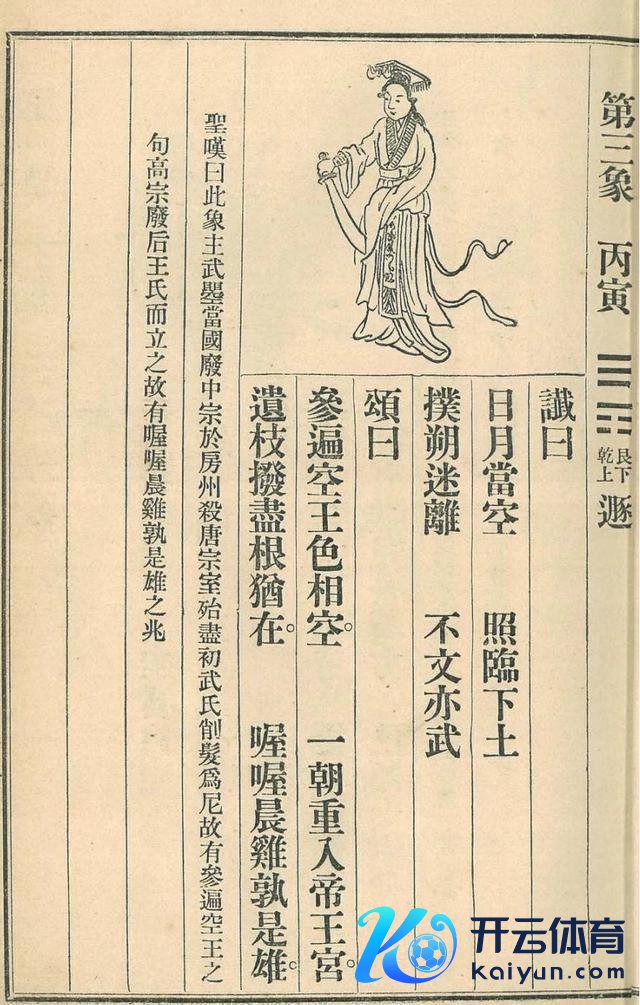 第三象 丙寅 艮下 乾上 遯
讖曰
日月當空 照臨下土
撲朔迷離 不文亦武
頌曰
參遍空王色相空。 一朝重入帝王宮。
遺枝撥盡根猶在。 喔喔晨雞孰是雄。
聖嘆曰此象主武曌當國廢中宗於房州殺唐宗室殆盡初武氏削髮爲尼故有參遍空王之
句高宗廢后王氏而立之故有喔喔晨雞孰是雄之兆
开云体育
kaiyun.com